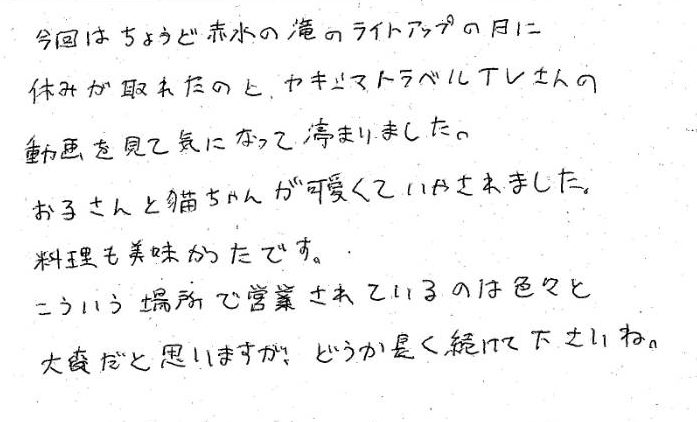 今回はちょうど赤水の滝のライトアップの日に
休みが取れたのと、ヤキジマトラベルTVさんの
動画を見て気になって滞まりました。
お子さんと猫ちゃんが可愛くていやされました。
料理も美味かったです。
こういう場所で営業されているのは色々と
大変だと思いますが、どうか長く続けて下さいね。